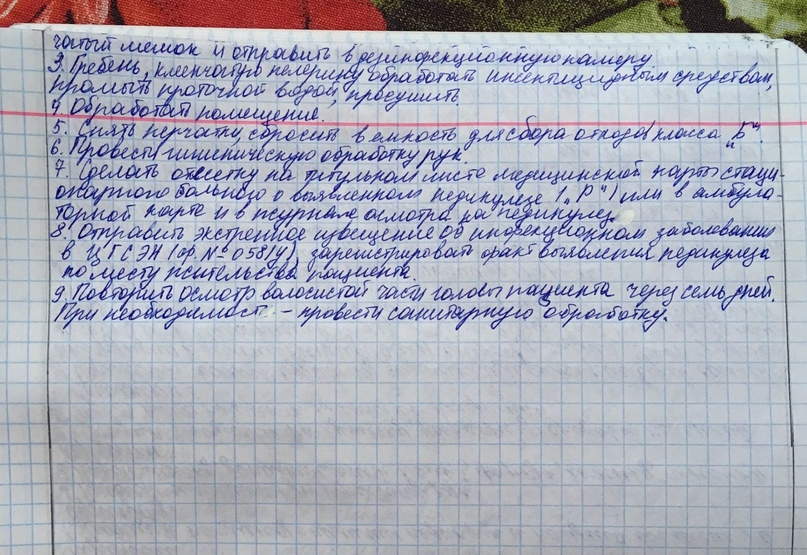 чатый мешок и отправить в дезинфекционную камеру
3. Гребень, клеенчатую пелерину обработать инсектицидным средством,
промыть проточной водой, просушить.
4. Обработать помещение.
5. Снять перчатки, сбросить в емкость для сбора отходов класса „Б".
6. Провести гигиеническую обработку рук.
7. Сделать отметку на титульном листе медицинской карты стаци-
онарного больного о выявленном педикулезе („Р") или в амбула-
торной карте и в журнале осмотра на педикулез.
8. Отправить экстренное извещение об инфекционном заболевании
в ЦГСЭН (ф. № 058/у), зарегистрировать факт выявления педикулеза
по месту жительства пациента.
9. Повторить осмотр волосистой части головы пациента через семь дней.
При необходимост - провести санитарную обработку.